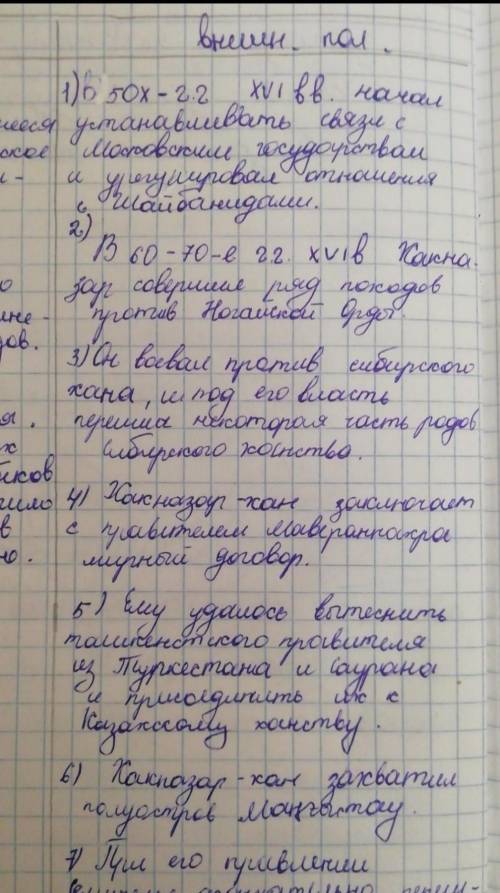 внешн. пол.
1) В 50х - г.г XVI вв. начал
устанавливать связи с
Московским государствам
и урегулировал отношения
с Шайбанидами.
2)
В 60-70-е г.г. XVI в Хакна-
зар совершил ряд походов
против Ногайской Орды.
3) Он воевал против сибирского
хана, и под его власть
перешла некоторая часть родов
Сибирского ханства.
4) Хакназар-хан заключает
с правителем Мавераннахра
мирный договор.
5) Ему удалось вытеснить
ташкентского правителя
из Туркестана и Саурана
и присоединить их к
Казахскому ханству.
6) Хакназар-хан захватил
полуостров Маңғыстау.
7) При его правлении